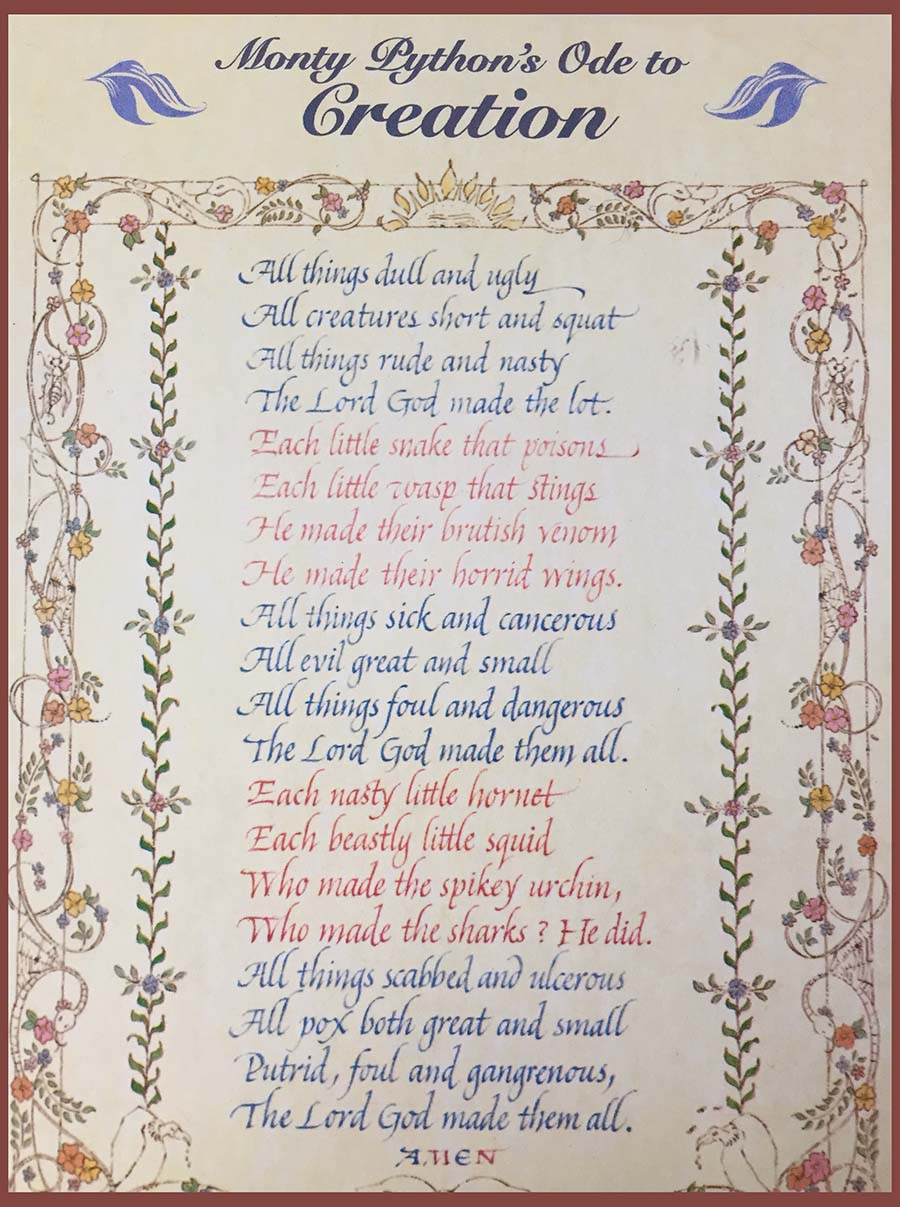 Monty Python's Ode to
Creation
All things dull and ugly
All creatures short and squat
All things rude and nasty
The Lord God made the lot.
Each little snake that poisons
Each little wasp that stings
He made their brutish venom
He made their horrid wings.
All things sick and cancerous
All evil great and small
All things foul and dangerous
The Lord God made them all.
Each nasty little hornet
Each beastly little squid
Who made the spikey urchin,
Who made the sharks? He did.
All things scabbed and ulcerous
All pox both great and small
Putrid, foul and gangrenous,
The Lord God made them all.
AMEN